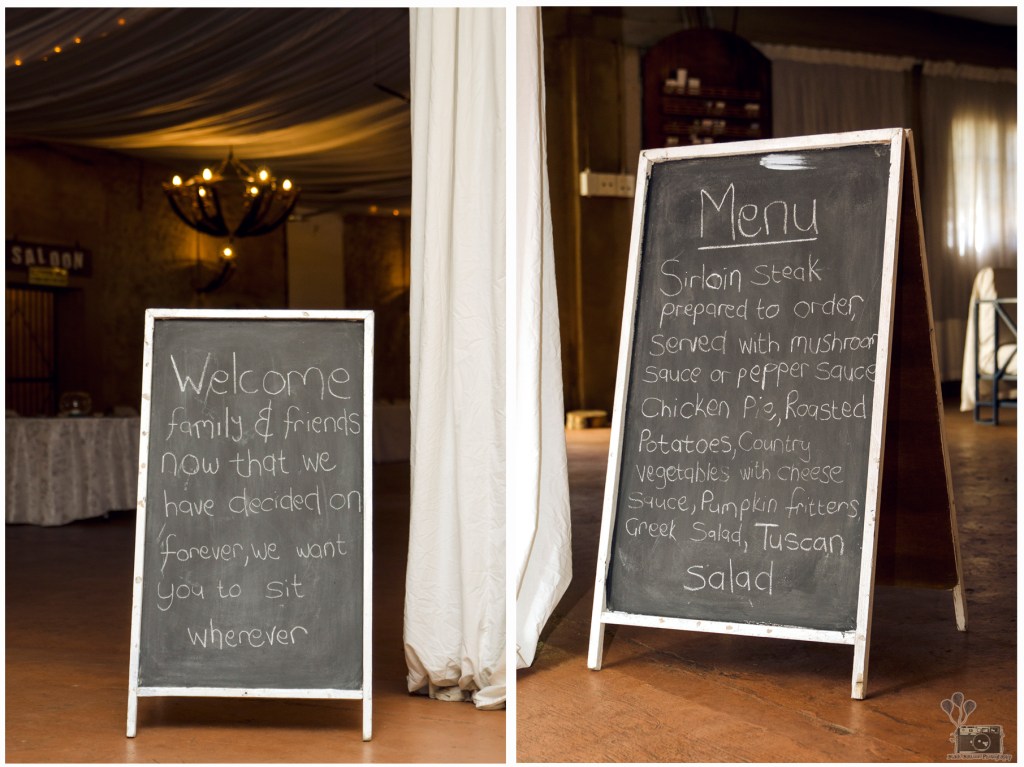 SALOON
Welcome
family & friends
now that we
have decided on
forever, we want
you to sit
wherever
Menu
Sirloin steak
prepared to order,
served with mushroom
sauce or pepper sauce
Chicken Pie, Roasted
Potatoes, Country
vegetables with cheese
sauce, Pumpkin fritters,
Greek Salad, Tuscan
Salad